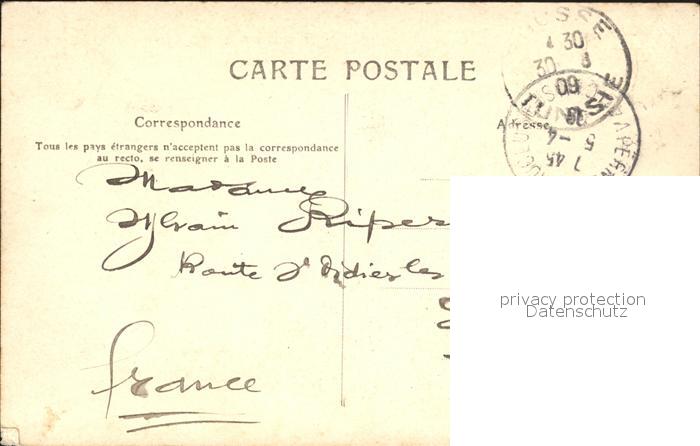 CARTE POSTALE
Correspondance
Adresse
Tous les pays étrangers n'acceptent pas la correspondance
au recto, se renseigner à la Poste
Madame
Sylvain Riper
Route St Didier les
France
privacy protection
Datenschutz